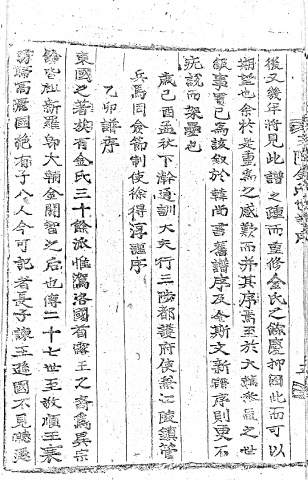 後又幾年將見此譜之踵而重修金氏之餘慶抑因此而可以
期望也余於是重爲之感歎而并其序焉至於大輔發蹟之世
叙事實已爲該叙於韓尙書舊譜序及金斯文新譜序則更不
疣說而架疊也
歲己酉孟秋下澣通訓大夫行三陟都護府使兼江陵鎭管
兵馬同僉節制使徐得淳謹序
乙卯譜序
東國之著族有金氏三十餘派惟駕洛國首露王之裔爲異宗
餘皆祖新羅卽大輔金閼智之后也傳二十七世至敬順王衰
弱歸高麗國絶有子八人今可記者長子諫王遜國不見聽遂